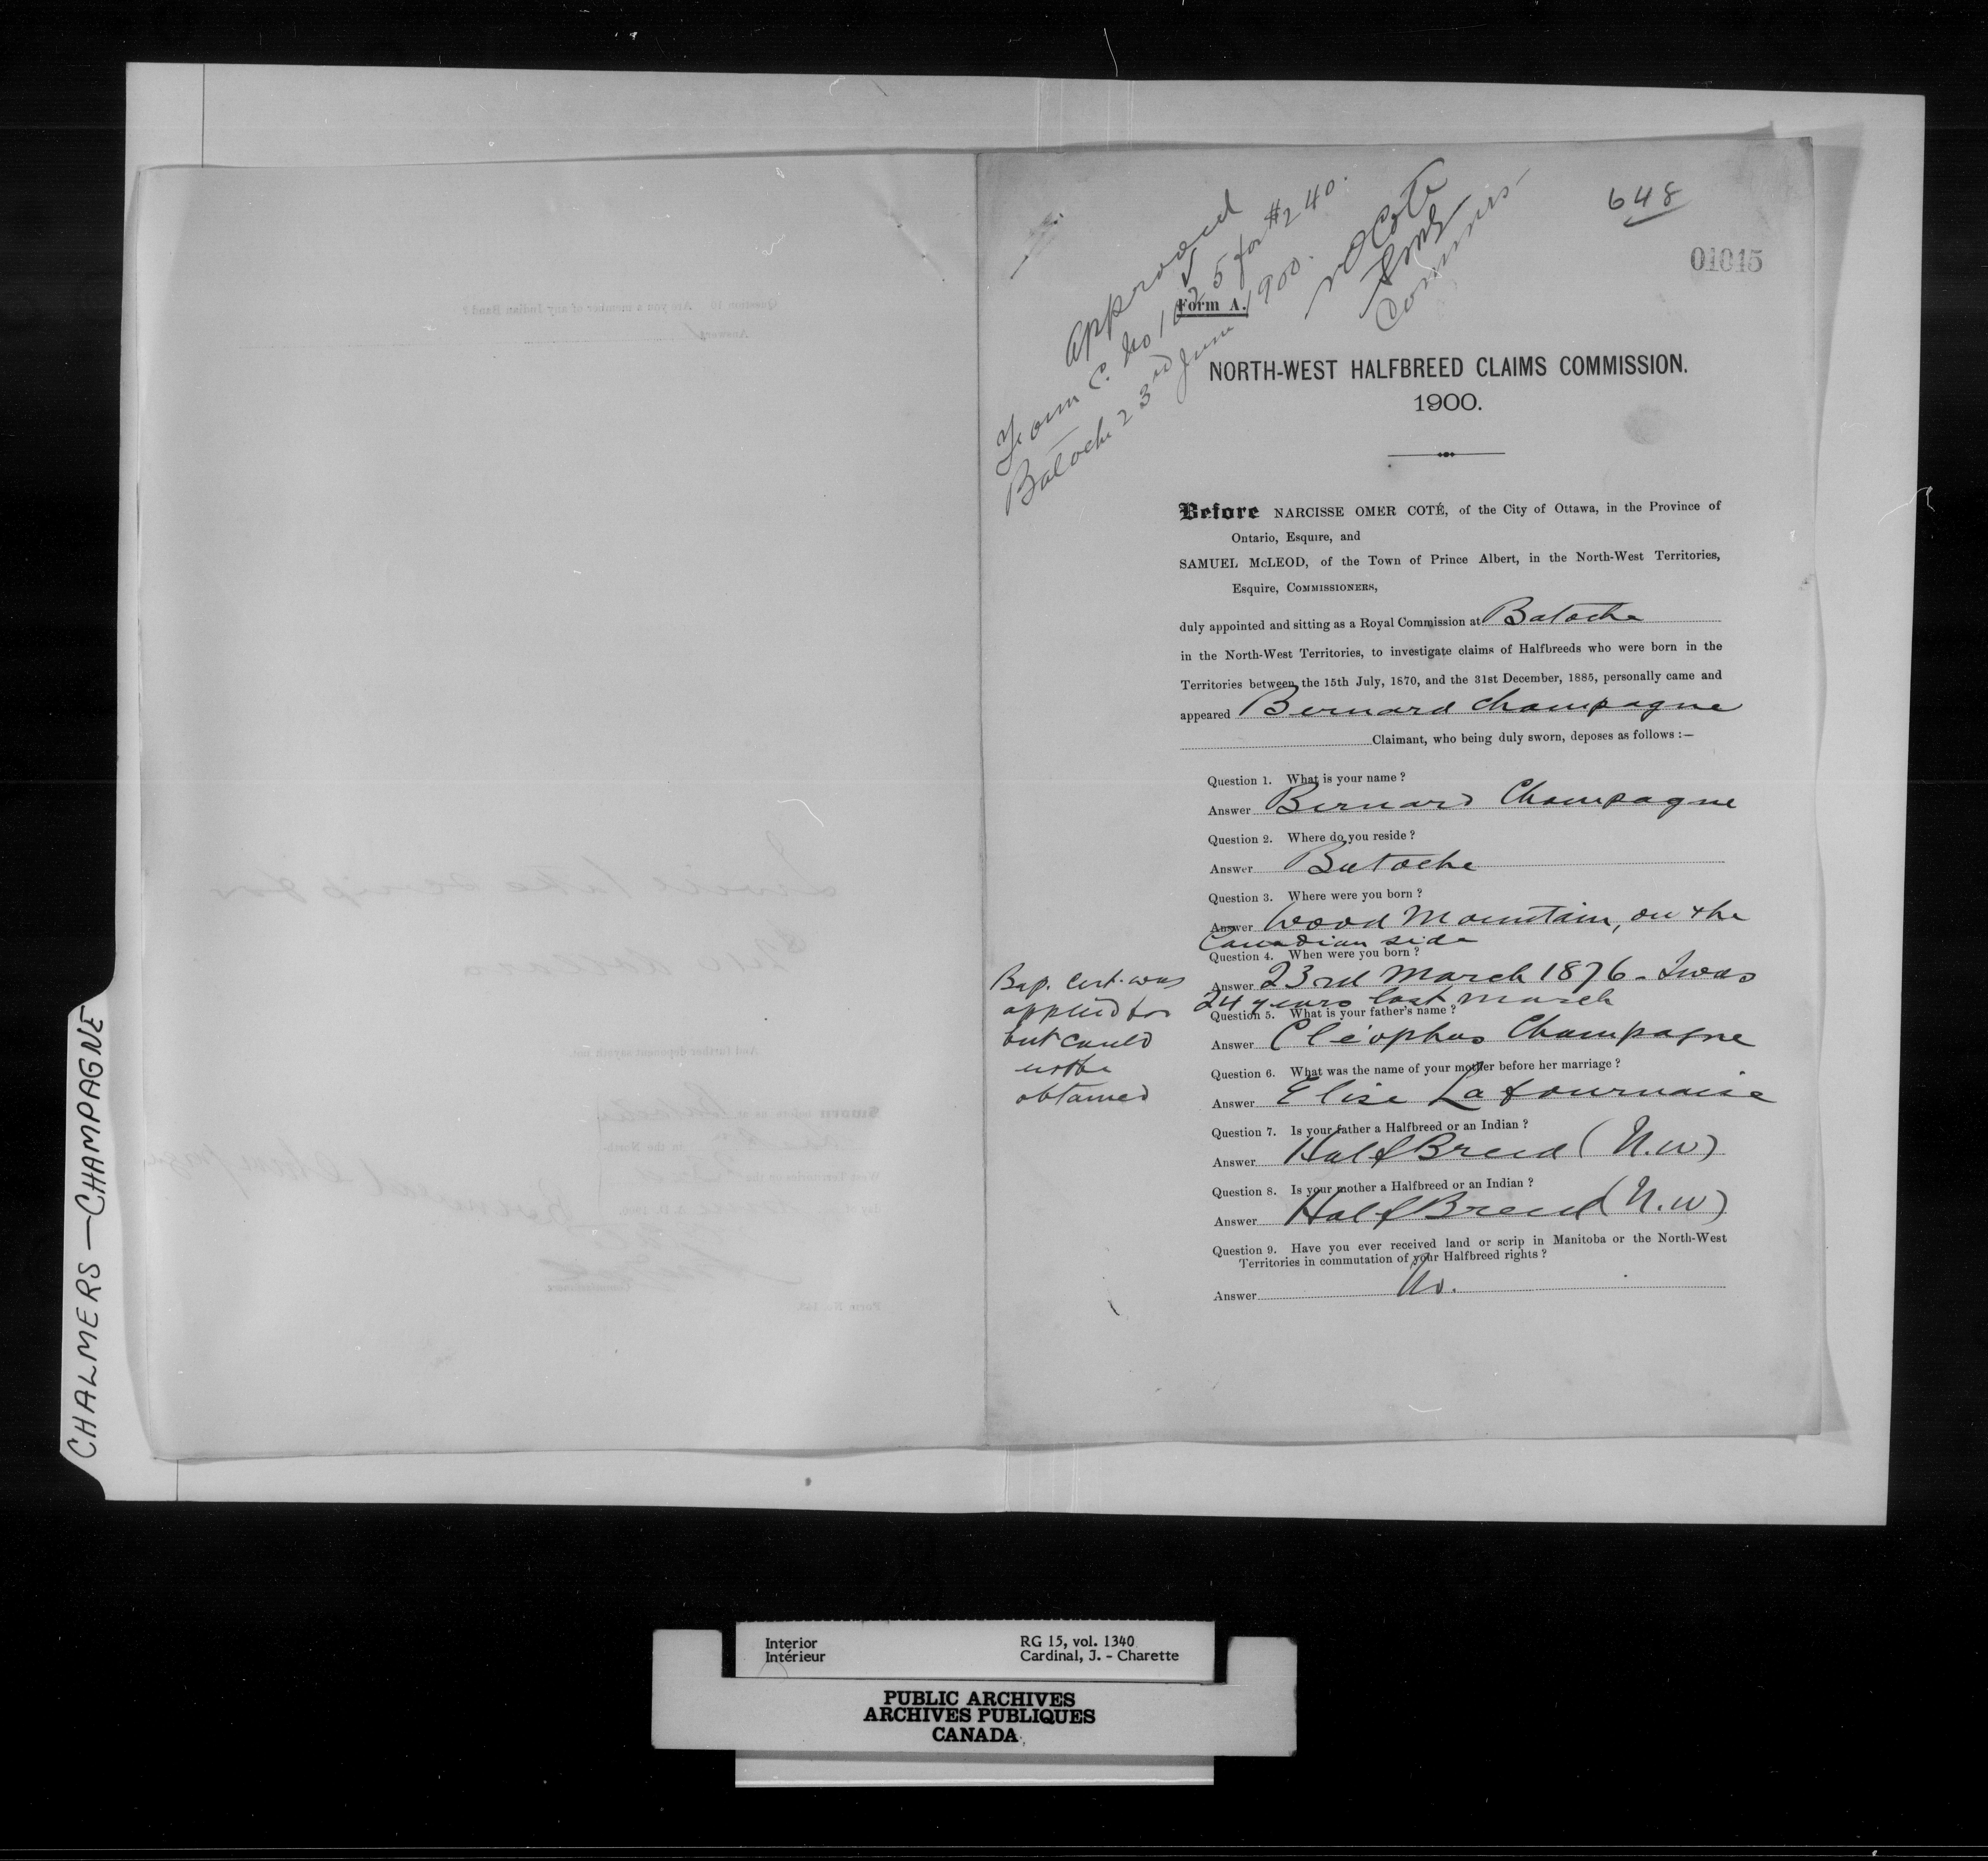 CHALMERS — CHAMPAGNE
648
01015
Approved
Form C. No 1025 for $240.
Batoche 23rd June 1900.
N O Coté
Commrs
Form A.
NORTH-WEST HALFBREED CLAIMS COMMISSION.
1900.
Before NARCISSE OMER COTÉ, of the City of Ottawa, in the Province of
Ontario, Esquire, and
SAMUEL McLEOD, of the Town of Prince Albert, in the North-West Territories,
Esquire, COMMISSIONERS,
duly appointed and sitting as a Royal Commission at Batoche
in the North-West Territories, to investigate claims of Halfbreeds who were born in the
Territories between the 15th July, 1870, and the 31st December, 1885, personally came and
appeared Bernard Champagne
Claimant, who being duly sworn, deposes as follows :—
Question 1. What is your name ?
Answer Bernard Champagne
Question 2. Where do you reside ?
Answer Batoche
Question 3. Where were you born ?
Answer Wood Mountain, on the
Canadian side
Question 4. When were you born ?
Answer 23rd March 1876 - I was
24 years last March
Bap. Cert. was
applied for
but could
not be
obtained
Question 5. What is your father's name ?
Answer Cléophas Champagne
Question 6. What was the name of your mother before her marriage ?
Answer Elise Lafournaise
Question 7. Is your father a Halfbreed or an Indian ?
Answer Half Breed (N.W)
Question 8. Is your mother a Halfbreed or an Indian ?
Answer Half Breed (N.W)
Question 9. Have you ever received land or scrip in Manitoba or the North-West
Territories in commutation of your Halfbreed rights ?
Answer No.
Question 10. Are you a member of any Indian Band ?
Answer
And further deponent sayeth not
Interior
Intérieur
RG 15, vol. 1340
Cardinal, J. - Charette
PUBLIC ARCHIVES
ARCHIVES PUBLIQUES
CANADA